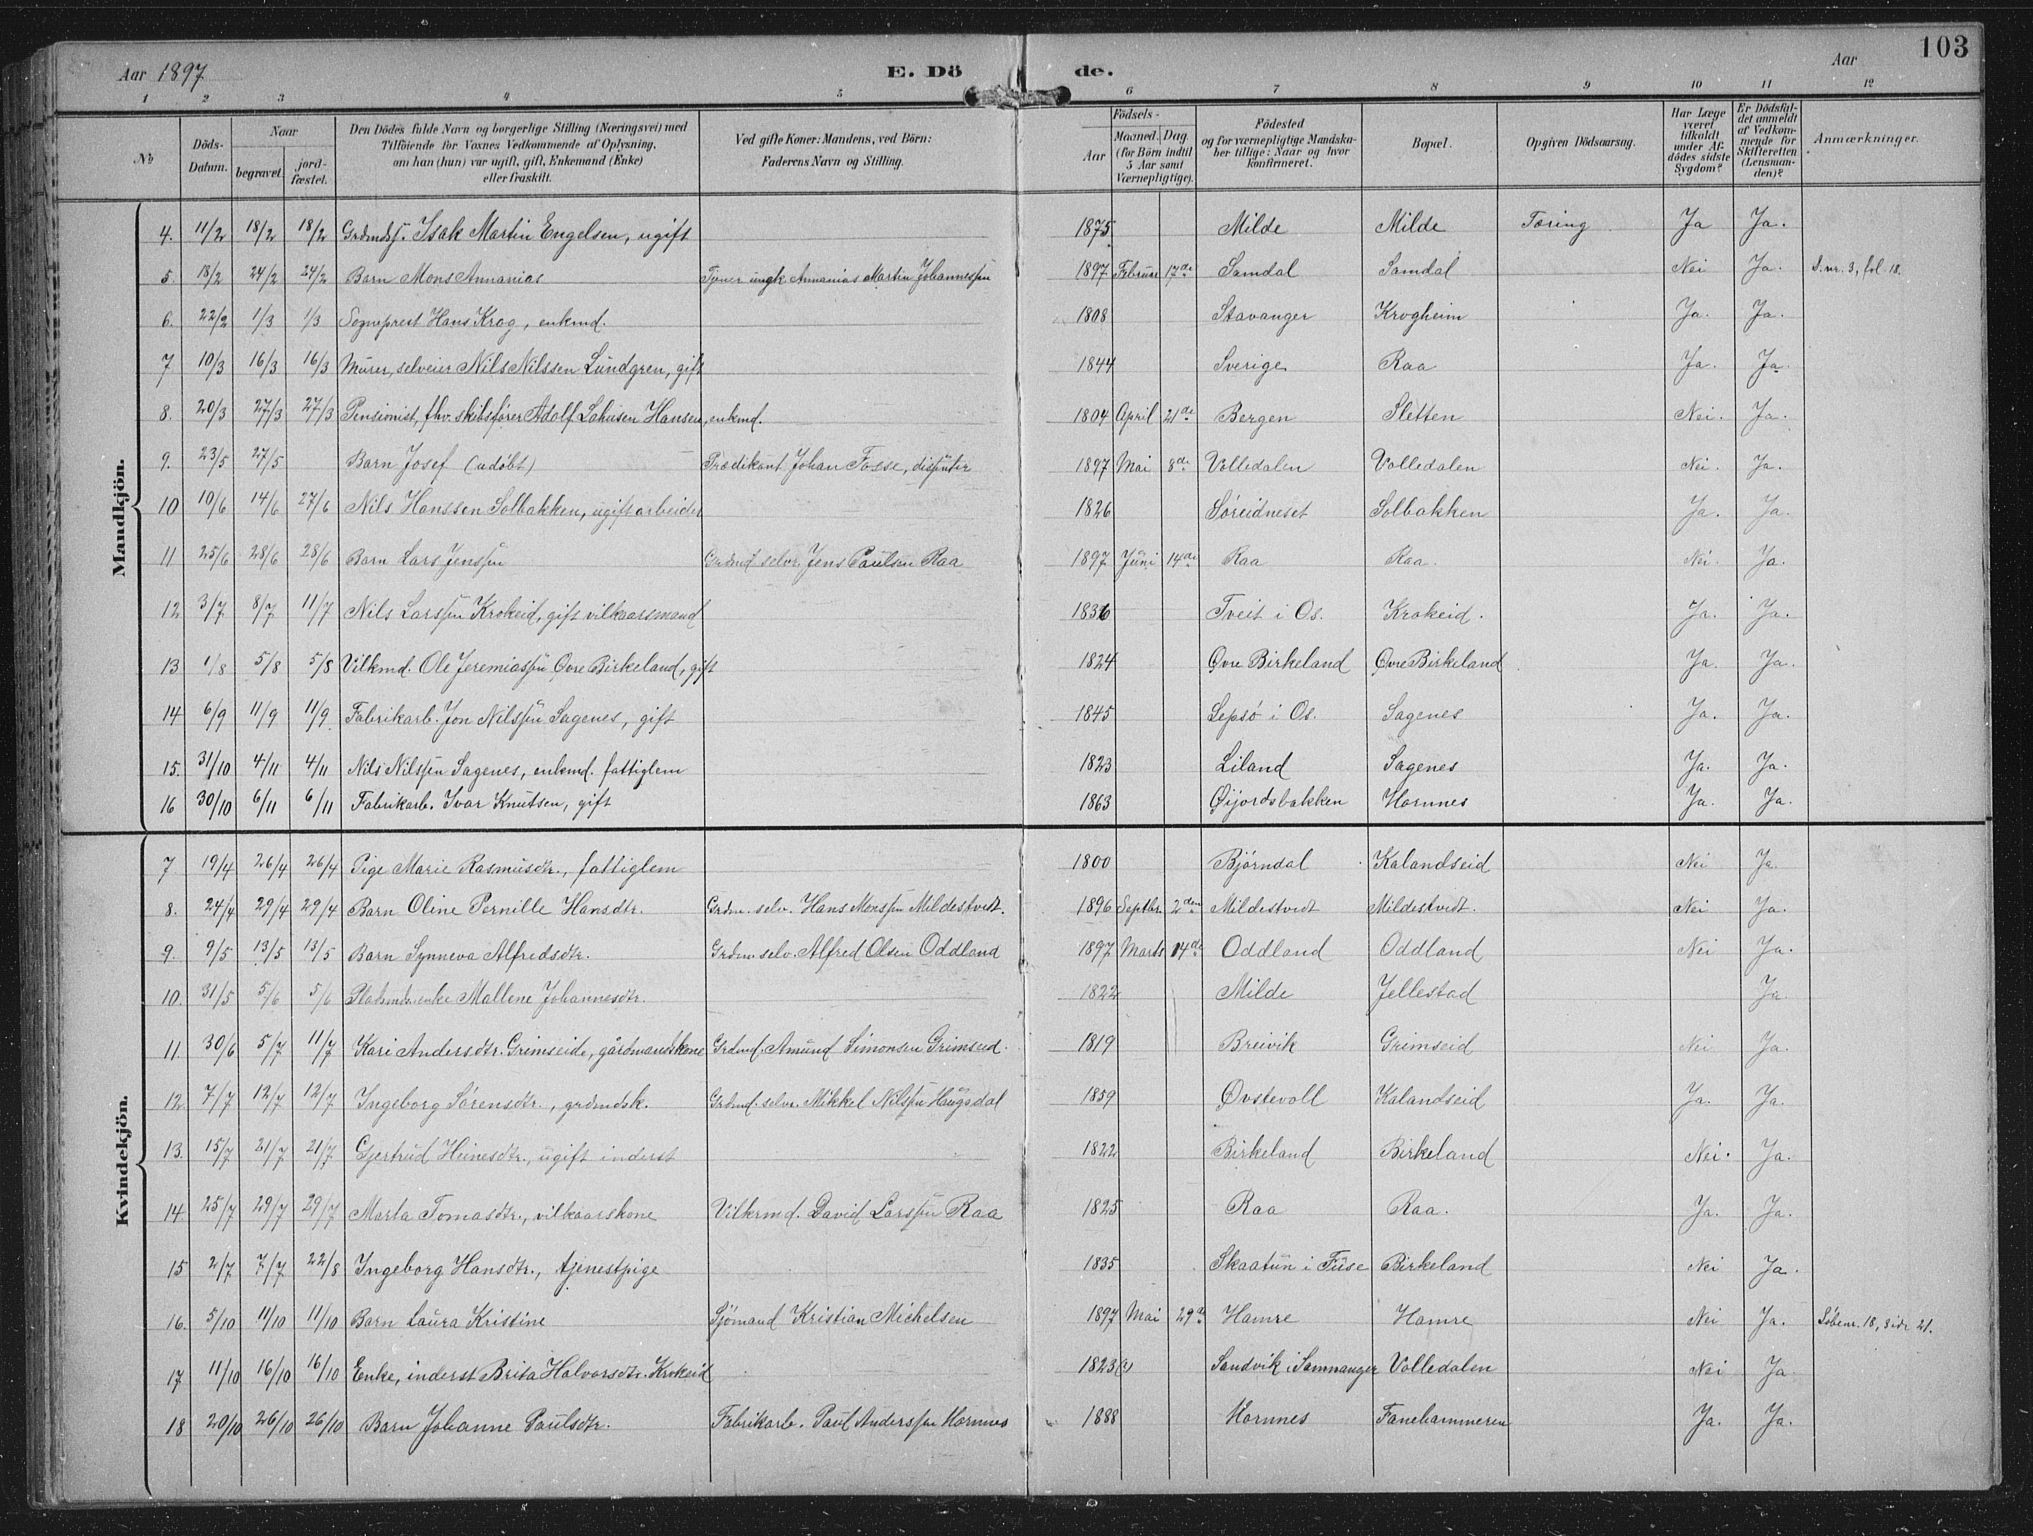 103
Aar 1897 E. Dö de. Aar
1 2 3 4 5 6 7 8 9 10 11 12
No
Döds-Datum.
Naar
begravet.
jord-fæstet.
Den Dödes fulde Navn og borgerlige Stilling (Næringsvei) med
Tilföiende for Voxnes Vedkommende af Oplysning,
om han (hun) var ugift, gift, Enkemand (Enke)
eller fraskilt.
Ved gifte Koner: Mandens, ved Börn:
Faderens Navn og Stilling.
Födsels-
Aar
Maaned. Dag.
(for Börn indtil
5 Aar samt
Værnepligtige).
Födested
og for værnepligtige Mandska-
ber tillige: Naar og hvor
konfirmeret.
Bopæl.
Opgiven Dödsaarsag.
Har Læge
været
tilkaldt
under Af-
dödes sidste
Sygdom?
Er Dödsfal-
det anmeldt
af Vedkom-
mende for
Skifteretten
(Lensman-
den)?
Anmærkninger.
Mandkjön.
4. 11/2 18/2 18/2 Grdmdsf. Isak Martin Engelsen, ugift 1875 Milde Milde Tæring Ja Ja.
5. 18/2 24/2 24/2 Barn Mons Annanias Tjener ungk Annanias Martin Johannessen 1897 Februar 17de Samdal Samdal Nei Ja. D. nr. 3, fol 18.
6. 22/2 1/3 1/3 Sogneprest Hans Krog, enkmd. 1808 Stavanger Krogheim Ja. Ja.
7 10/3 16/3 16/3 Murer, selveier Nils Nilssen Lundgren, gift 1844 Sverige Raa Ja. Ja.
8. 20/3 27/3 27/3 Pensionist, fhv. skibsfører Adolf Lahusen Hansen, enkmd. 1804 April 21de Bergen Sletten Nei. Ja.
9. 23/5 27/5 Barn Josef (udøbt) Prædikant Johan Fosse, 1897 Mai 8de Volledalen Volledalen Nei. Ja.
10 10/6 14/6 27/6 Nils Hanssen Solbakken, ugift arbeider 1826 Søreidneset Solbakken Ja. Ja.
11 25/6 28/6 28/6 Barn Lars Jenssen Grdmd selvr. Jens Paulsen Raa 1897 Juni 14de Raa Raa. Nei Ja.
12 3/7 8/7 11/7 Nils Larssen Krokeid, gift vilkaarsmand 1836 Tveit i Os. Krokeid. Ja. Ja.
13 1/8 5/8 5/8 Vilkmd. Ole Jeremiassen Øvre Birkeland, gift 1824 Øvre Birkeland Øvre Birkeland Ja. Ja.
14 6/9 11/9 11/9 Fabrikarb. Jon Nilssen Sagenes, gift 1845 Lepsø i Os. Sagenes Ja. Ja.
15. 31/10 4/11 4/11 Nils Nilssen Sagenes, enkmd. fattiglem 1823 Liland Sagenes Ja. Ja.
16 30/10 6/11 6/11 Fabrikarb. Ivar Knutsen, gift 1863 Øijordsbakken Hornnes Ja. Ja.
Kvindekjön.
7 19/4 26/4 26/4 Pige Marie Rasmusdtr., fattiglem 1800 Bjørndal Kalandseid Nei Ja.
8. 24/4 29/4 29/4 Barn Oline Pernille Hansdtr. Grdm. selv. Hans Monssen Mildestvedt. 1896 Septbr. 2den Mildestvedt Mildestvedt. Nei Ja.
9. 9/5 13/5 13/5 Barn Synneva Alfredsdtr. Grdm. selv. Alfred Olsen Oddland 1897 Marts 14de Oddland Oddland Nei Ja.
10. 31/5 5/6 5/6 Pladsmdr. enke Mallene Johannesdtr. 1822 Milde Jellestad Ja.
11. 30/6 5/7 11/7 Kari Andersdtr. Grimseide, gårdmandskone Grdmd. Amund Simonsen Grimseid. 1819 Breivik Grimseid Nei Ja.
12. 7/7 12/7 12/7 Ingeborg Sørensdtr., grdmdsk. Grdmd. selvr. Mikkel Nilssen Haugsdal 1859 Øvstevoll Kalandseid Ja. Ja.
13. 15/7 21/7 21/7 Gjertrud Heinesdtr., ugift inderst 1822 Birkeland Birkeland Nei. Ja.
14 25/7 29/7 29/7 Marta Tomasdtr., vilkaarskone Vilkrmd. David Larssen Raa 1825 Raa Raa. Ja. Ja.
15 2/7 7/7 22/8 Ingeborg Hansdtr., tjenestpige 1835 Skaatun i Fuse Birkeland Nei Ja.
16. 5/10 11/10 11/10 Barn Laura Kristine Sjömand Kristian Michelsen 1897 Mai 29de Hamre Hamre Nei Ja. Løbenr. 18, side 21.
17 11/10 16/10 16/10 Enke, inderst Brita Halvorsdtr. Krokeid 1823(?) Sandvik i Samnanger Volledalen Nei Ja.
18 20/10 26/10 26/10 Barn Johanne Paulsdtr. Fabrikarb. Paul Anderssen Hornnes 1888 Hornnes Fanehammeren Ja. Ja.